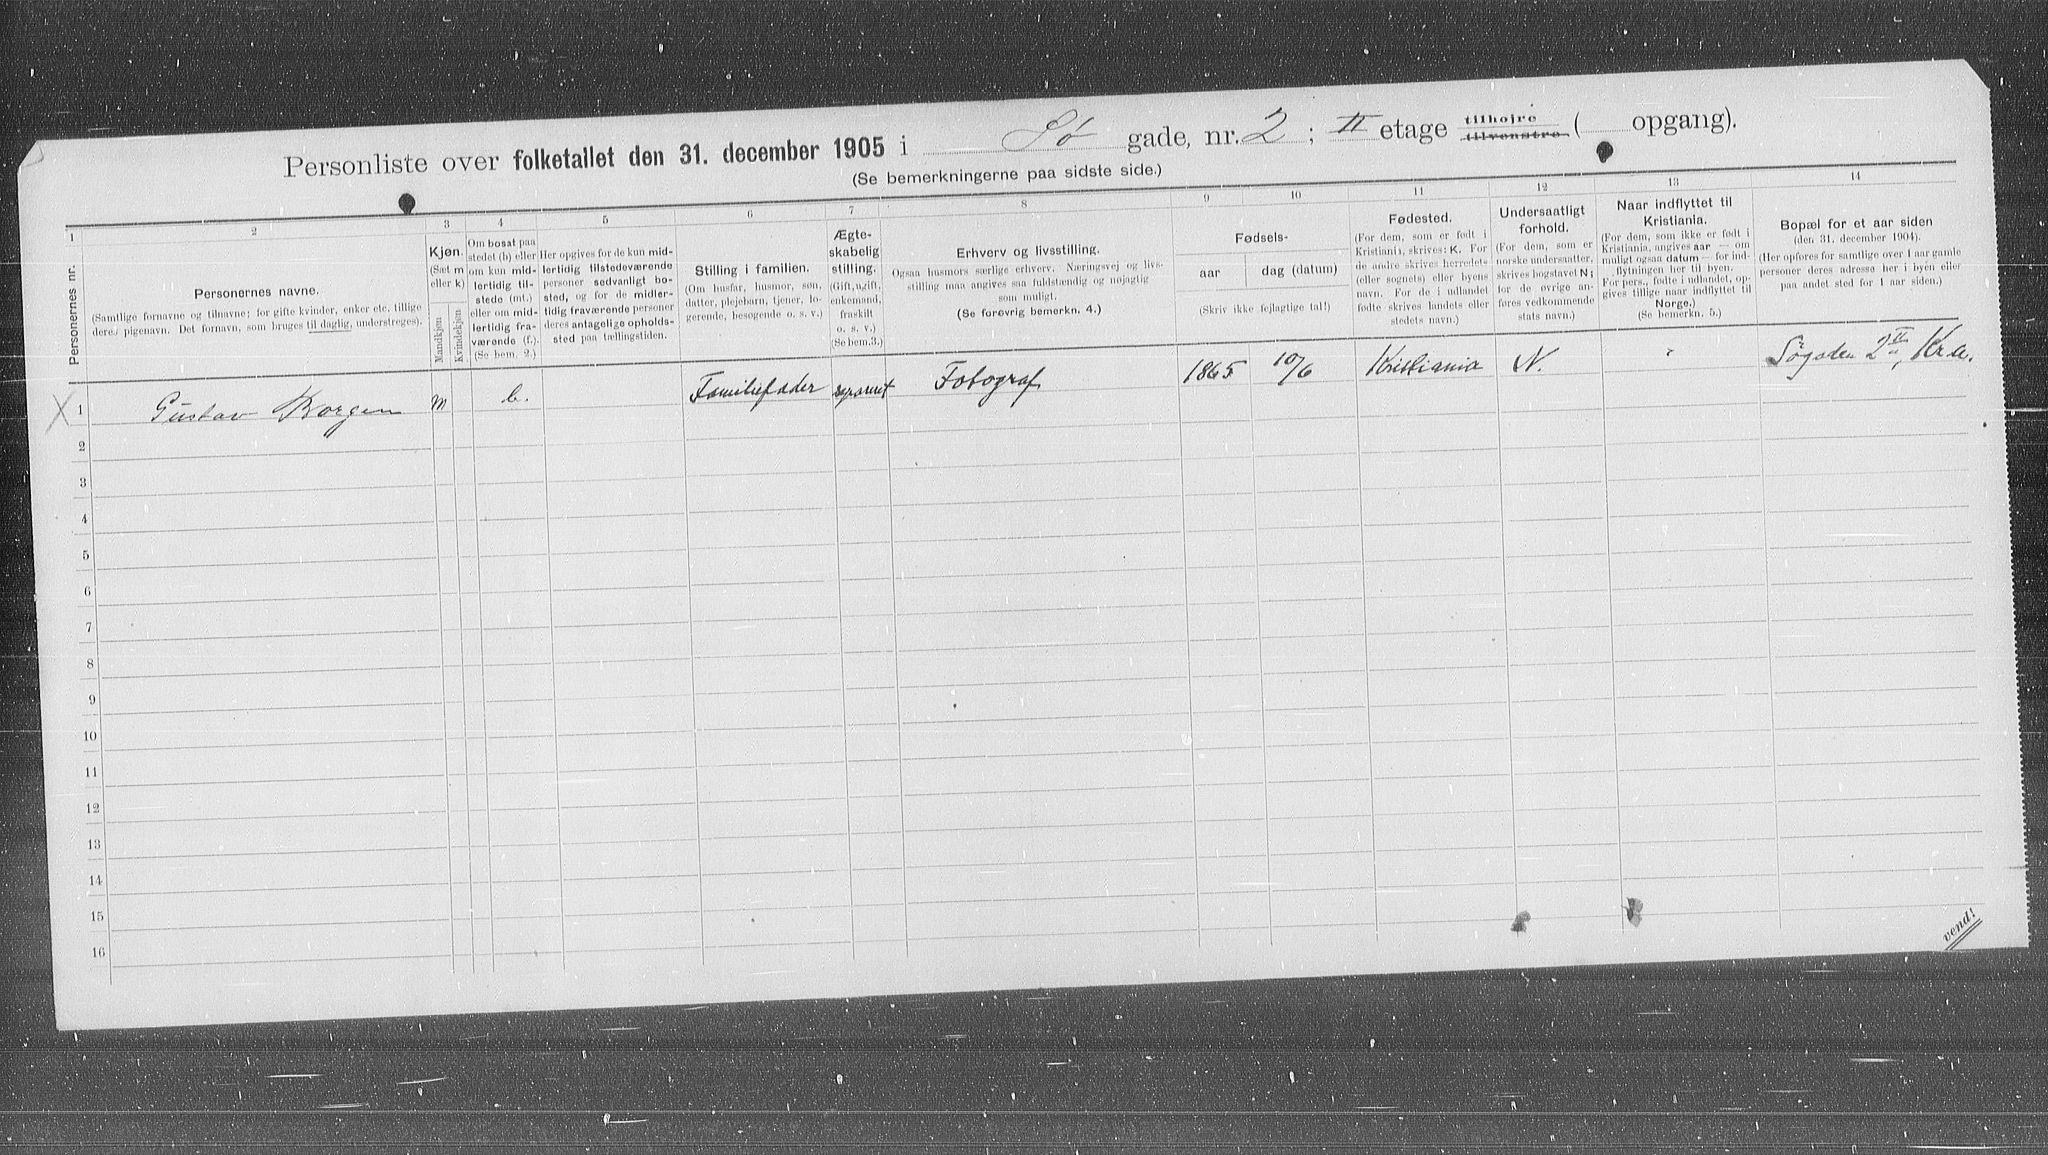 Personliste over folketallet den 31. december 1905 i Sø gade, nr. 2 ; II etage tilhøjre tilvenstre ( opgang).
(Se bemerkningerne paa sidste side.)
1 2 3 4 5 6 7 8 9 10 11 12 13 14
Personernes nr.
Personernes navne.
(Samtlige fornavne og tilnavne; for gifte kvinder, enker etc. tillige
deres pigenavn. Det fornavn, som bruges til daglig, understreges).
Kjøn.
(Sæt m
eller k)
Mandkjøn
Kvindekjøn
Om bosat paa
stedet (b) eller
om kun mid-
lertidig til-
stede (mt.)
eller om mid-
lertidig fra-
værende (f.).
(Se bem. 2.)
Her opgives for de kun mid-
lertidig tilstedeværende
personer sedvanligt bo-
sted, og for de midler-
tidig fraværende personer
deres antagelige opholds-
sted paa tællingstiden.
Stilling i familien.
(Om husfar, husmor, søn,
datter, plejebarn, tjener, lo-
gerende, besøgende o. s. v.)
Ægte-
skabelig
stilling.
(Gift, ugift,
enkemand,
fraskilt
o. s. v.)
(Se bem.3.)
Erhverv og livsstilling.
Ogsaa husmors særlige erhverv. Næringsvej og livs-
stilling maa angives saa fuldstændig og nøjagtig
som muligt.
(Se forøvrig bemerkn. 4.)
Fødsels-
aar
dag (datum)
(Skriv ikke fejlagtige tal!)
Fødested.
(For dem, som er født i
Kristiania, skrives: K. For
de andre skrives herredets
(eller sognets) eller byens
navn. For de i udlandet
fødte skrives landets eller
stedets navn.)
Undersaatligt
forhold.
(For dem, som er
norske undersaatter,
skrives bogstavet N;
for de øvrige an-
føres vedkommende
stats navn.)
Naar indflyttet til
Kristiania.
(For dem, som ikke er født i
Kristiania, angives aar — om
muligt ogsaa datum — for ind-
flytningen her til byen.
For pers., fødte i udlandet, op-
gives tillige naar indflyttet til
Norge.)
(Se bemerkn. 5.)
Bopæl for et aar siden
(den 31. december 1904).
(Her opføres for samtlige over 1 aar gamle
personer deres adresse her i byen eller
paa andet sted for 1 aar siden.)
X 1 Gustav Borgen m b. Familiefader separert Fotograf 1865 10/6 Kristiania N. Søgaden 2 II, Kra.
2
3
4
5
6
7
8
9
10
11
12
13
14
15
16
vend!